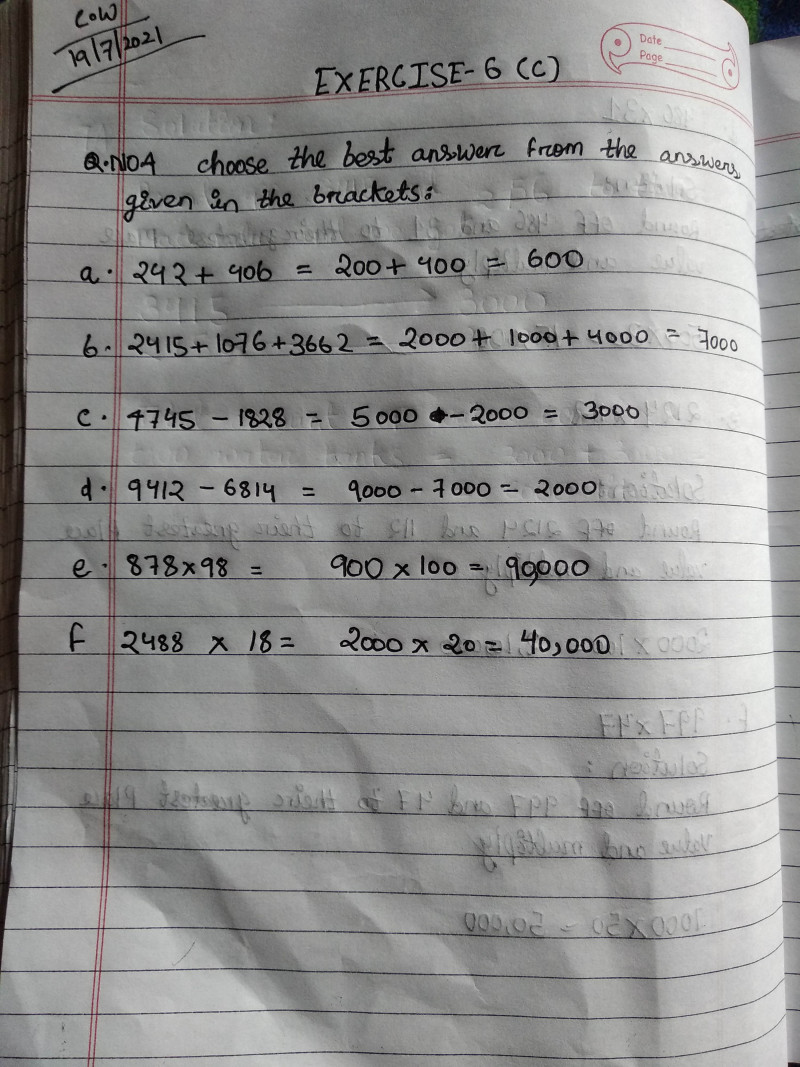 COW
19/7/2021
Date
Page
EXERCISE-6 (C)
Q.NO4 choose the best answer from the answers
given in the brackets:
a. 242 + 406 = 200 + 400 = 600
b. 2415 + 1076 + 3662 = 2000 + 1000 + 4000 = 7000
c. 4745 - 1828 = 5000 - 2000 = 3000
d. 9412 - 6814 = 9000 - 7000 = 2000
e. 878 x 98 = 900 x 100 = 90,000
f 2488 x 18 = 2000 x 20 = 40,000